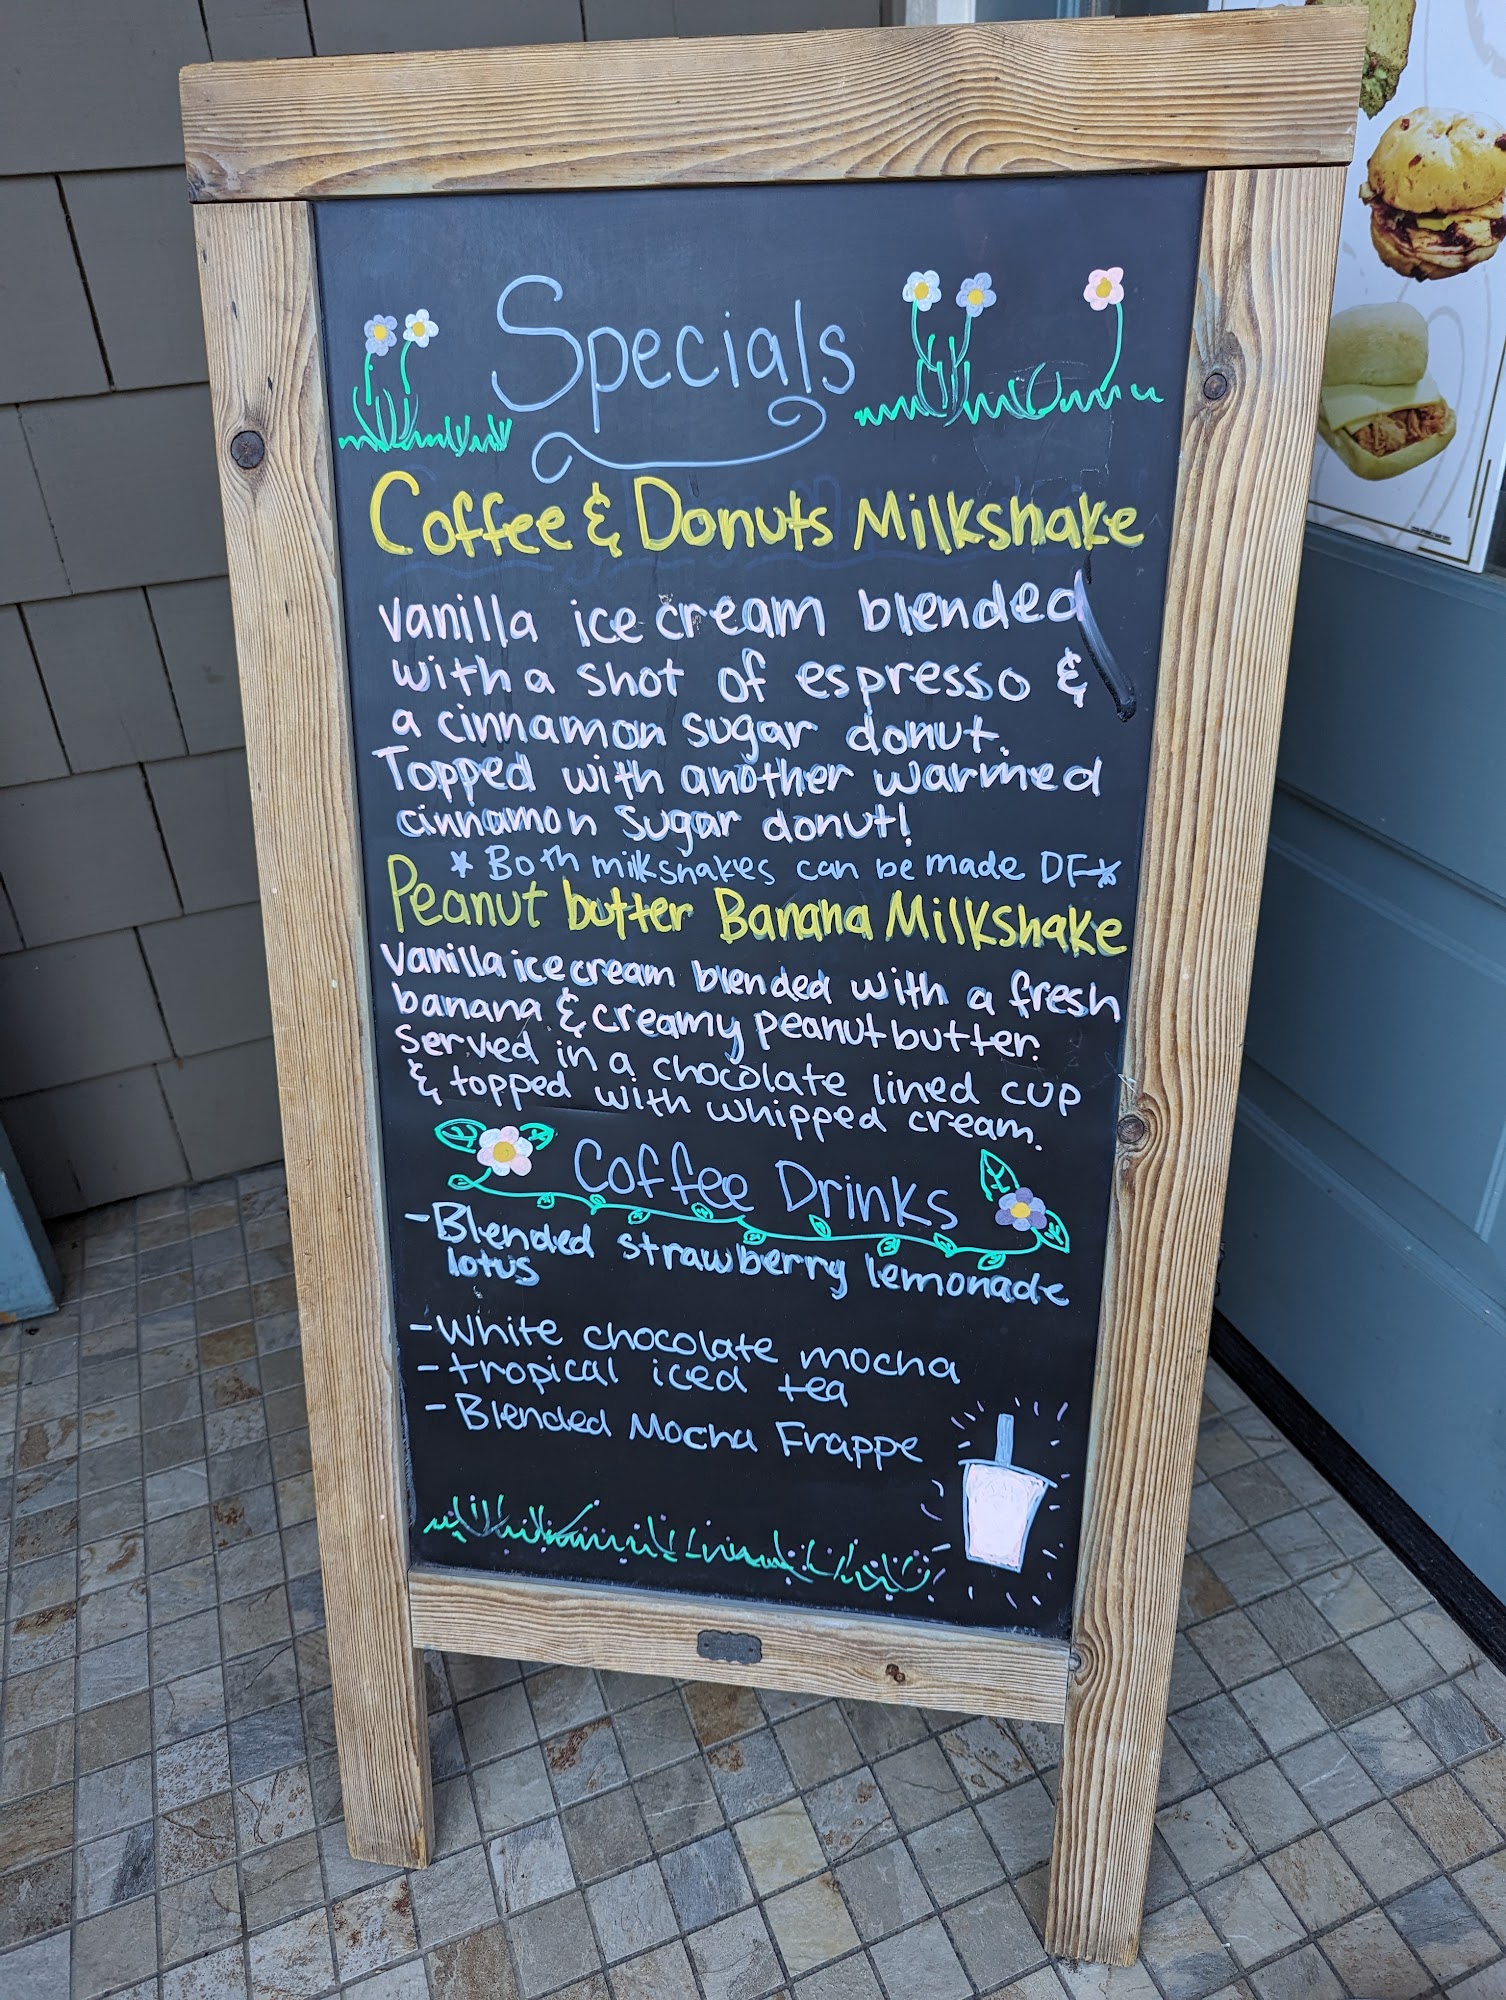 Specials
Coffee & Donuts Milkshake
vanilla ice cream blended
with a shot of espresso &
a cinnamon sugar donut.
Topped with another warmed
cinnamon sugar donut!
* Both milkshakes can be made DF *
Peanut butter Banana Milkshake
vanilla ice cream blended with a fresh
banana & creamy peanut butter.
served in a chocolate lined cup
& topped with whipped cream.
Coffee Drinks
- Blended strawberry lemonade
lotus
- White chocolate mocha
- tropical iced tea
- Blended Mocha Frappe